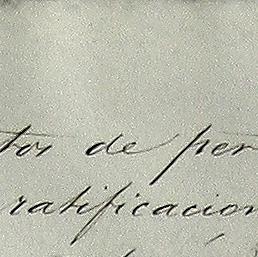 tos de per
ratificacion